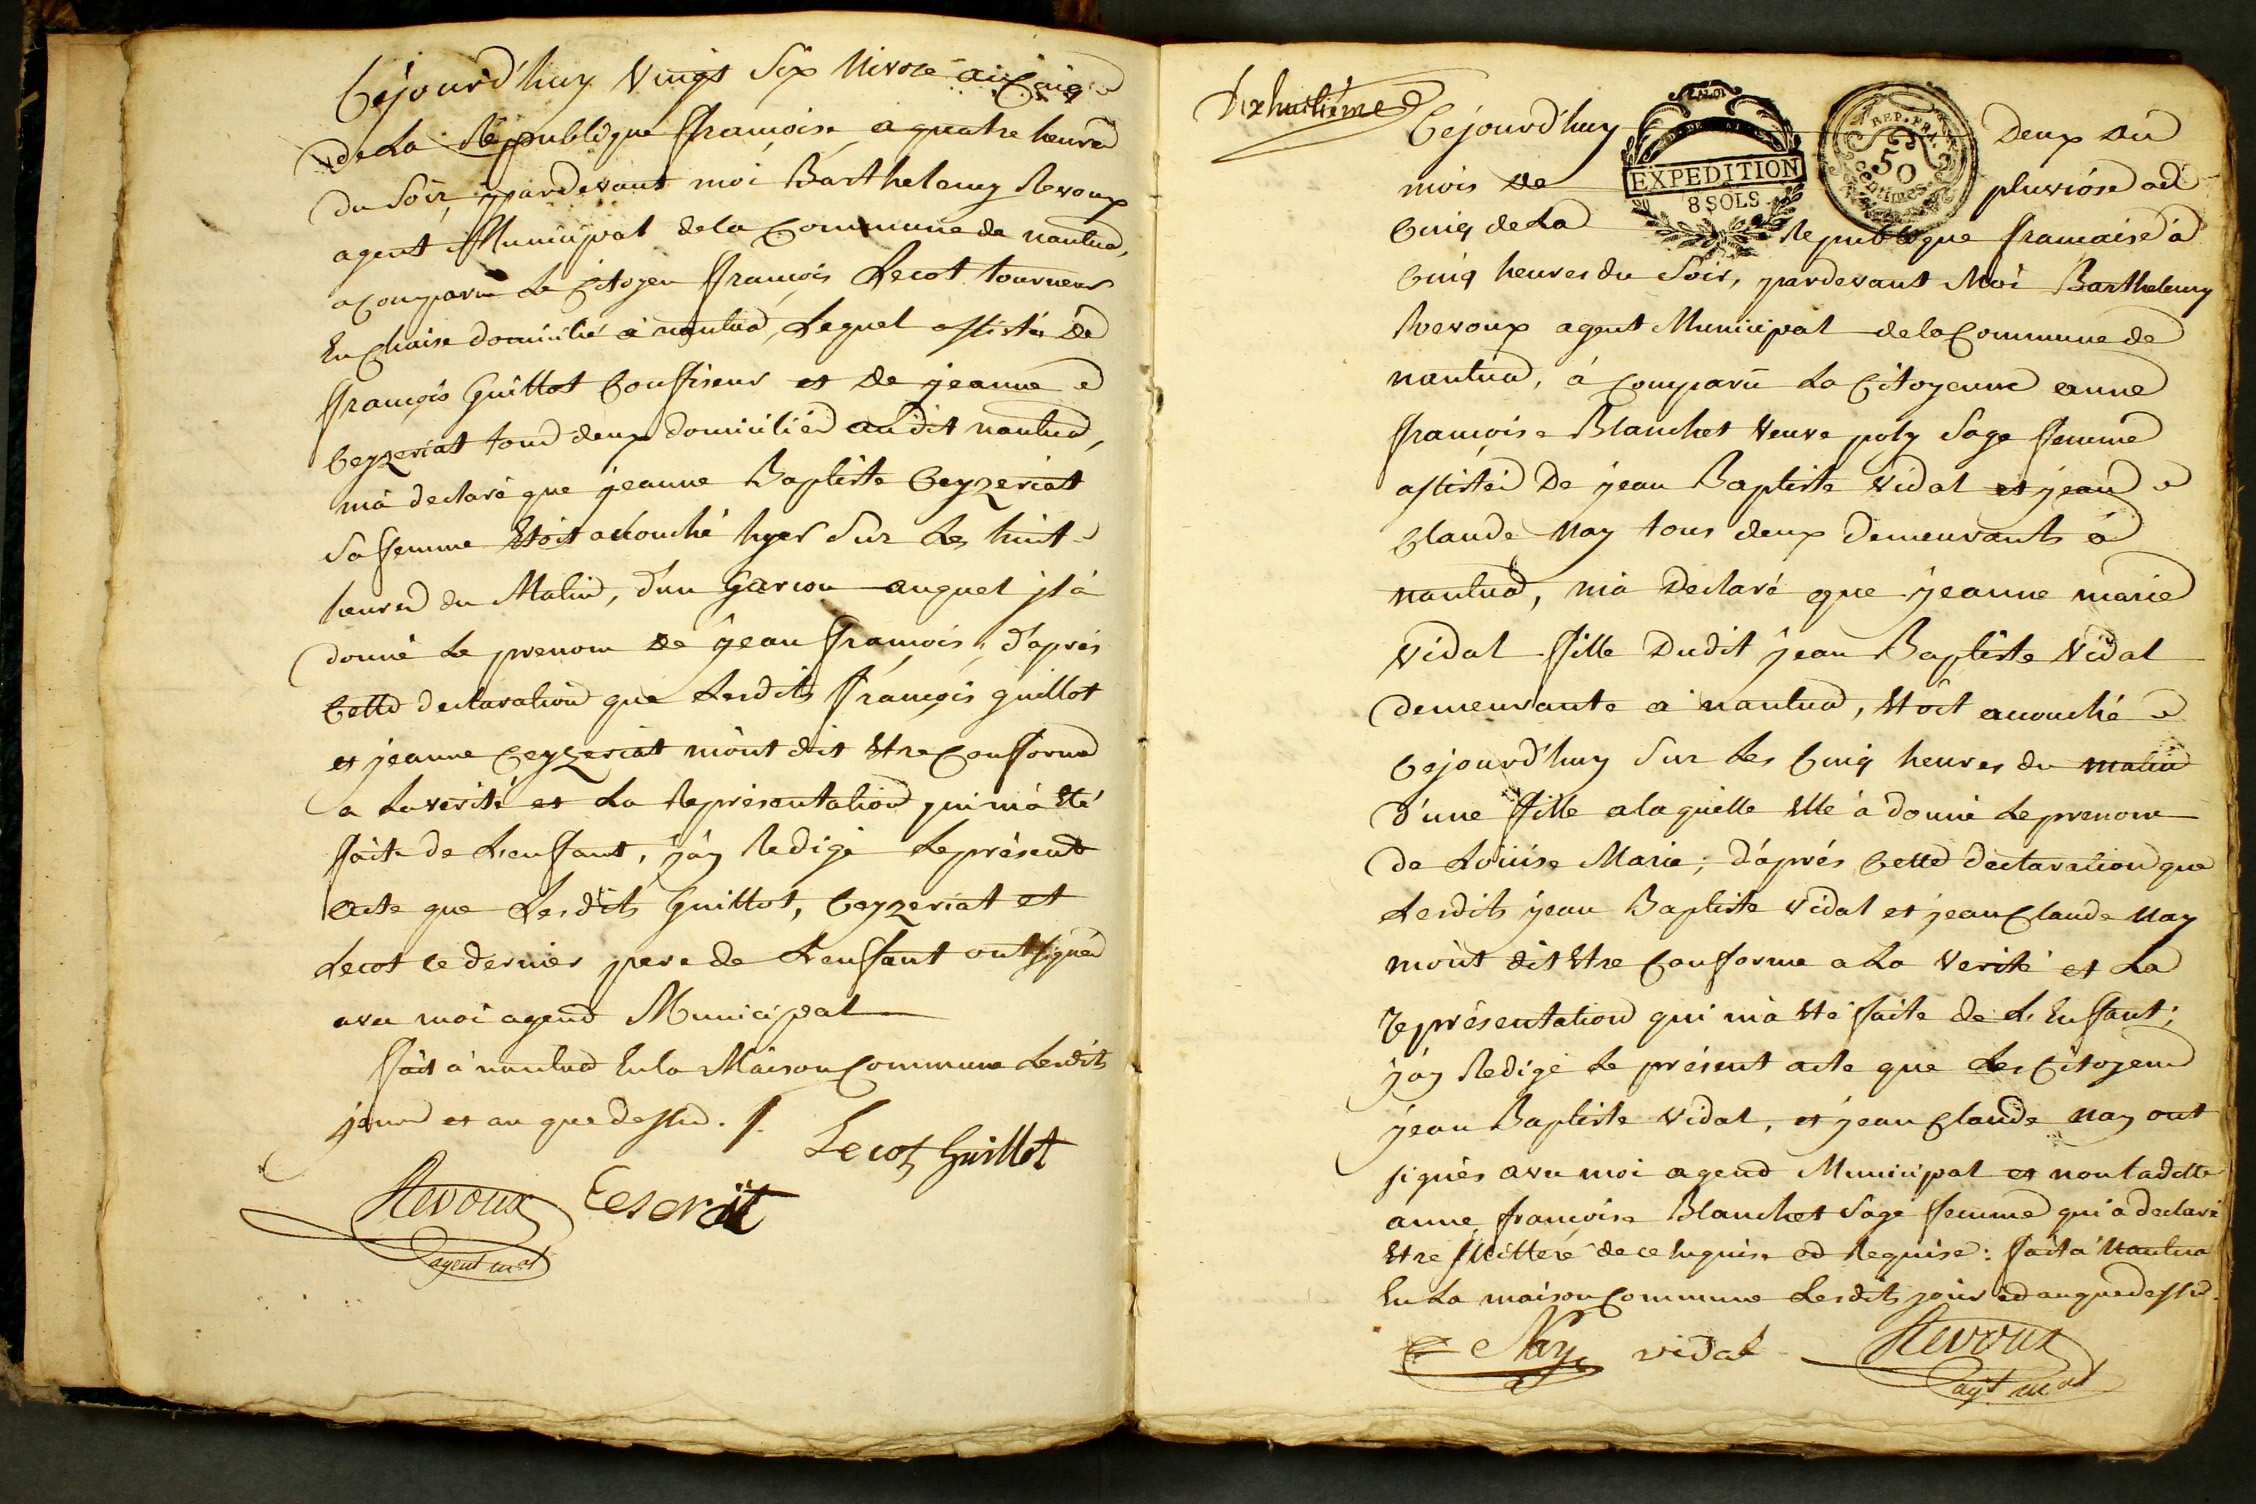 Cejourd'huy vingt six Nivose an Cinq
De La Republique françoise a quatre heures
Du Soir, pardevant moi Barthelemy Revoux
agent Municipal de la Commune de nantua,
a Comparu Le Citoyen françois Lecot tourneur
En Chaise domicilié à nantua, Lequel assistés de
françois Guillot Confiseur et De jeanne
Ceyzeriat tous deux domiciliés audit nantua,
m'a declaré que jeanne Baptiste Ceyzeriat
Sa femme Etoit accouché hyer Sur Les huit
heures du Matin, d'un Garcon auquel jl à
donné Le prenom de jean françois, d'après
Cette declaration que Lesdits françois guillot
et jeanne Ceyzeriat m'ont dit Etre Conforme
a La verité et La Représentation qui m'a Eté
faite de L'enfant, j'ay Redigé Le présent
acte que Lesdits Guillot, Ceyzeriat et
Lecot ce dernier pere de L'enfant ont signés
avec moi agend Municipal
fait à nantua En la Maison Commune Lesdits
jours et an que dessus. /.
Lecot Guillot
Revoux
agent m.al
Dixhuitieme
EXPEDITION
8 SOLS
REP. FRA.
50
Centimes
Cejourd'huy Deux du
mois de pluviose an
Cinq de La Republique francaise à
Cinq heures du Soir, pardevant Moi Barthelemy
Revoux agent Municipal de la Commune de
nantua, à Comparû La Citoyenne anne
françoise Blanchet Veuve poly Sage femme
assistés De jean Baptiste Vidal et jean
Claude Nay tous deux Demeurants à
nantua, m'a Declaré que jeanne marie
Vidal fille Dudit jean Baptiste Vidal
demeurante à nantua, Etoit accouché
Cejourd'huy Sur Les Cinq heures du matin
d'une fille a laquelle Elle à donné Le prenom
de Loüise Marie; d'après Cette declaration que
Lesdits jean Baptiste Vidal et jean Claude Nay
m'ont dit Etre Conforme a La Verité et La
représentation qui m'a Eté faite de L'Enfant;
j'ay Redigé Le présent acte que Les Citoyens
jean Baptiste Vidal, et jean Claude nay ont
signés avec moi agend Municipal et non ladette
anne françoise Blanchet Sage femme qui à declaré
Etre jllitteré de ce Enquise et Requise: fait à Nantua
En La maison Commune Lesdits jour et an que dessus.
Nay vidal Revoux
agt m.al